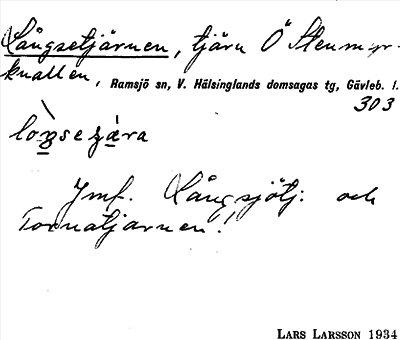 Långsetjärnen, tjärn Ö Stenmyr-
knallen, Ramsjö sn, V. Hälsinglands domsagas tg, Gävleb. l.
303
Jmf. Långsjötj: och
Tornatjärnen!
LARS LARSSON 1934